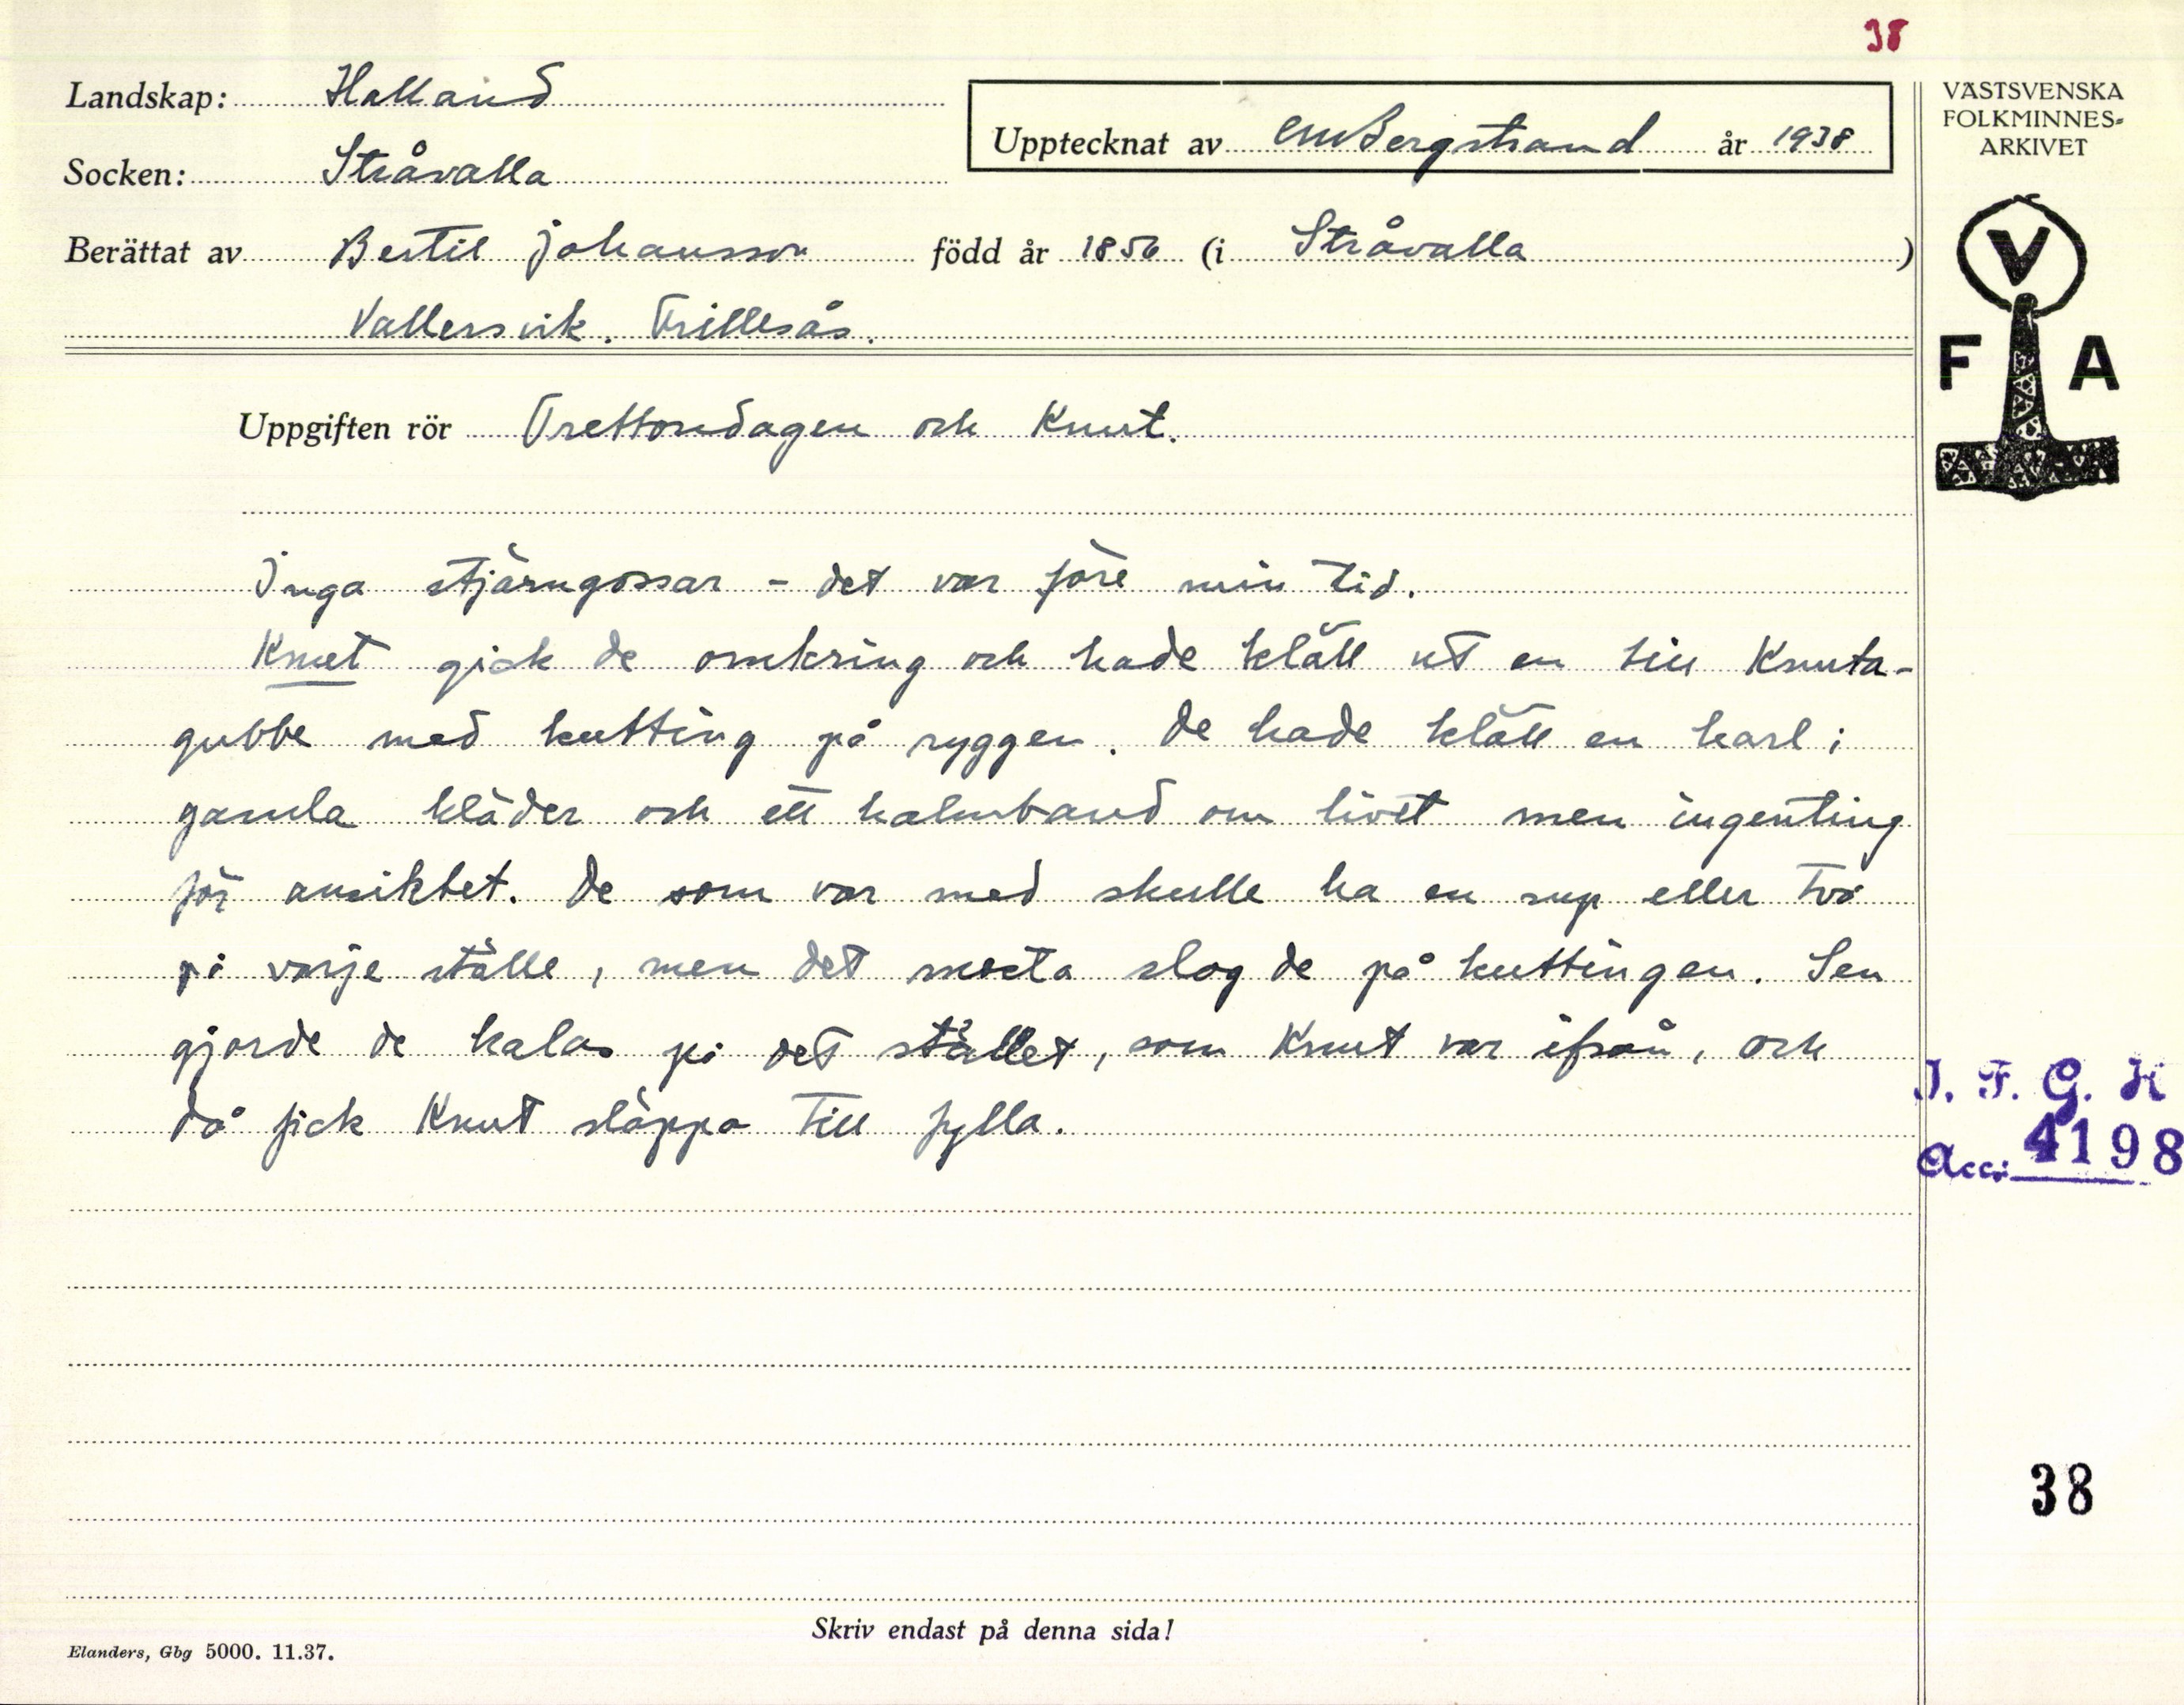 38
Landskap: Halland
Upptecknat av CMBergstrand år 1938
VÄSTSVENSKA
FOLKMINNES-
ARKIVET
Socken: Stråvalla
Berättat av Bertil Johansson född år 1856 (i Stråvalla)
Vallersvik. Frillesås.
V
F A
Uppgiften rör Trettondagen och Knut.
Inga stjärngossar - det var före min tid.
Knut gick de omkring och hade klätt ut en till Knuta-
gubbe med kutting på ryggen. De hade klätt en karl i
gamla kläder och ett halmband om livet men ingenting
för ansiktet. De som var med skulle ha en sup eller två
på varje ställe, men det mesta slog de på kuttingen. Sen
gjorde de kalas på det stället, som Knut var ifrån, och
då fick Knut släppa till fylla.
I. F. G. H
Acc: 4198
38
Skriv endast på denna sida!
Elanders, Gbg 5000. 11.37.